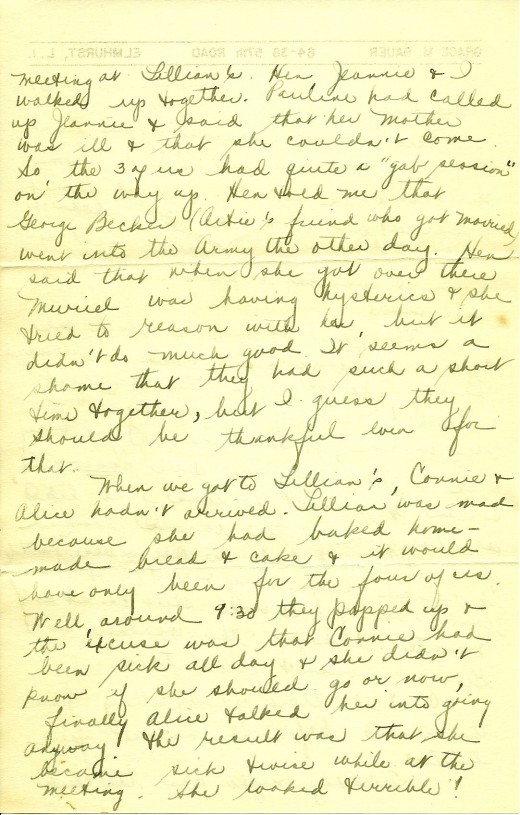 GRACE M. BAUER 84-38 57th ROAD ELMHURST, L. I.
meeting at Lillian's. Hen Jeannie & I
walked up together. Pauline had called
up Jeannie & said that her mother
was ill & that she couldn't come.
So the 3 of us had quite a "gab session"
on the way up. Hen told me that
George Becker (Artie's friend who got married)
went into the Army the other day. Hen
said that when she got over there
Muriel was having hysterics & she
tried to reason with her, but it
didn't do much good. It seems a
shame that they had such a short
time together, but I guess they
should be thankful even for
that.
When we got to Lillian's, Connie &
Alice hadn't arrived. Lillian was mad
because she had baked home-
made bread & cake & it would
have only been for the four of us.
Well, around 9:30 they popped up &
the excuse was that Connie had
been sick all day & she didn't
know if she should go or now,
finally Alice talked her into going
anyway! the result was that she
became sick twice while at the
meeting. She looked terrible!